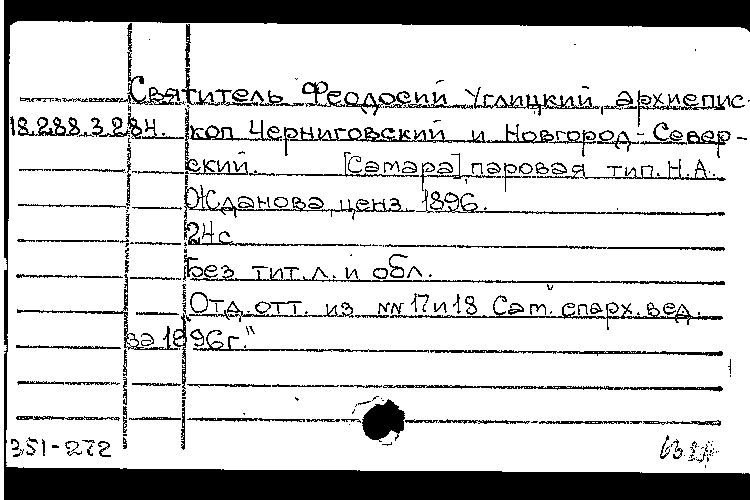 Святитель Феодосий Углицкий, архиепис-
18.288.3.284. коп Черниговский и Новгород-Север-
ский. [Самара], паровая тип. Н.А.
Жданова, ценз. 1896.
24с
Без тит.л. и обл.
Отд. отт. из NN 17 и 18 "Сам. епарх. вед.
за 1896г."
351-272